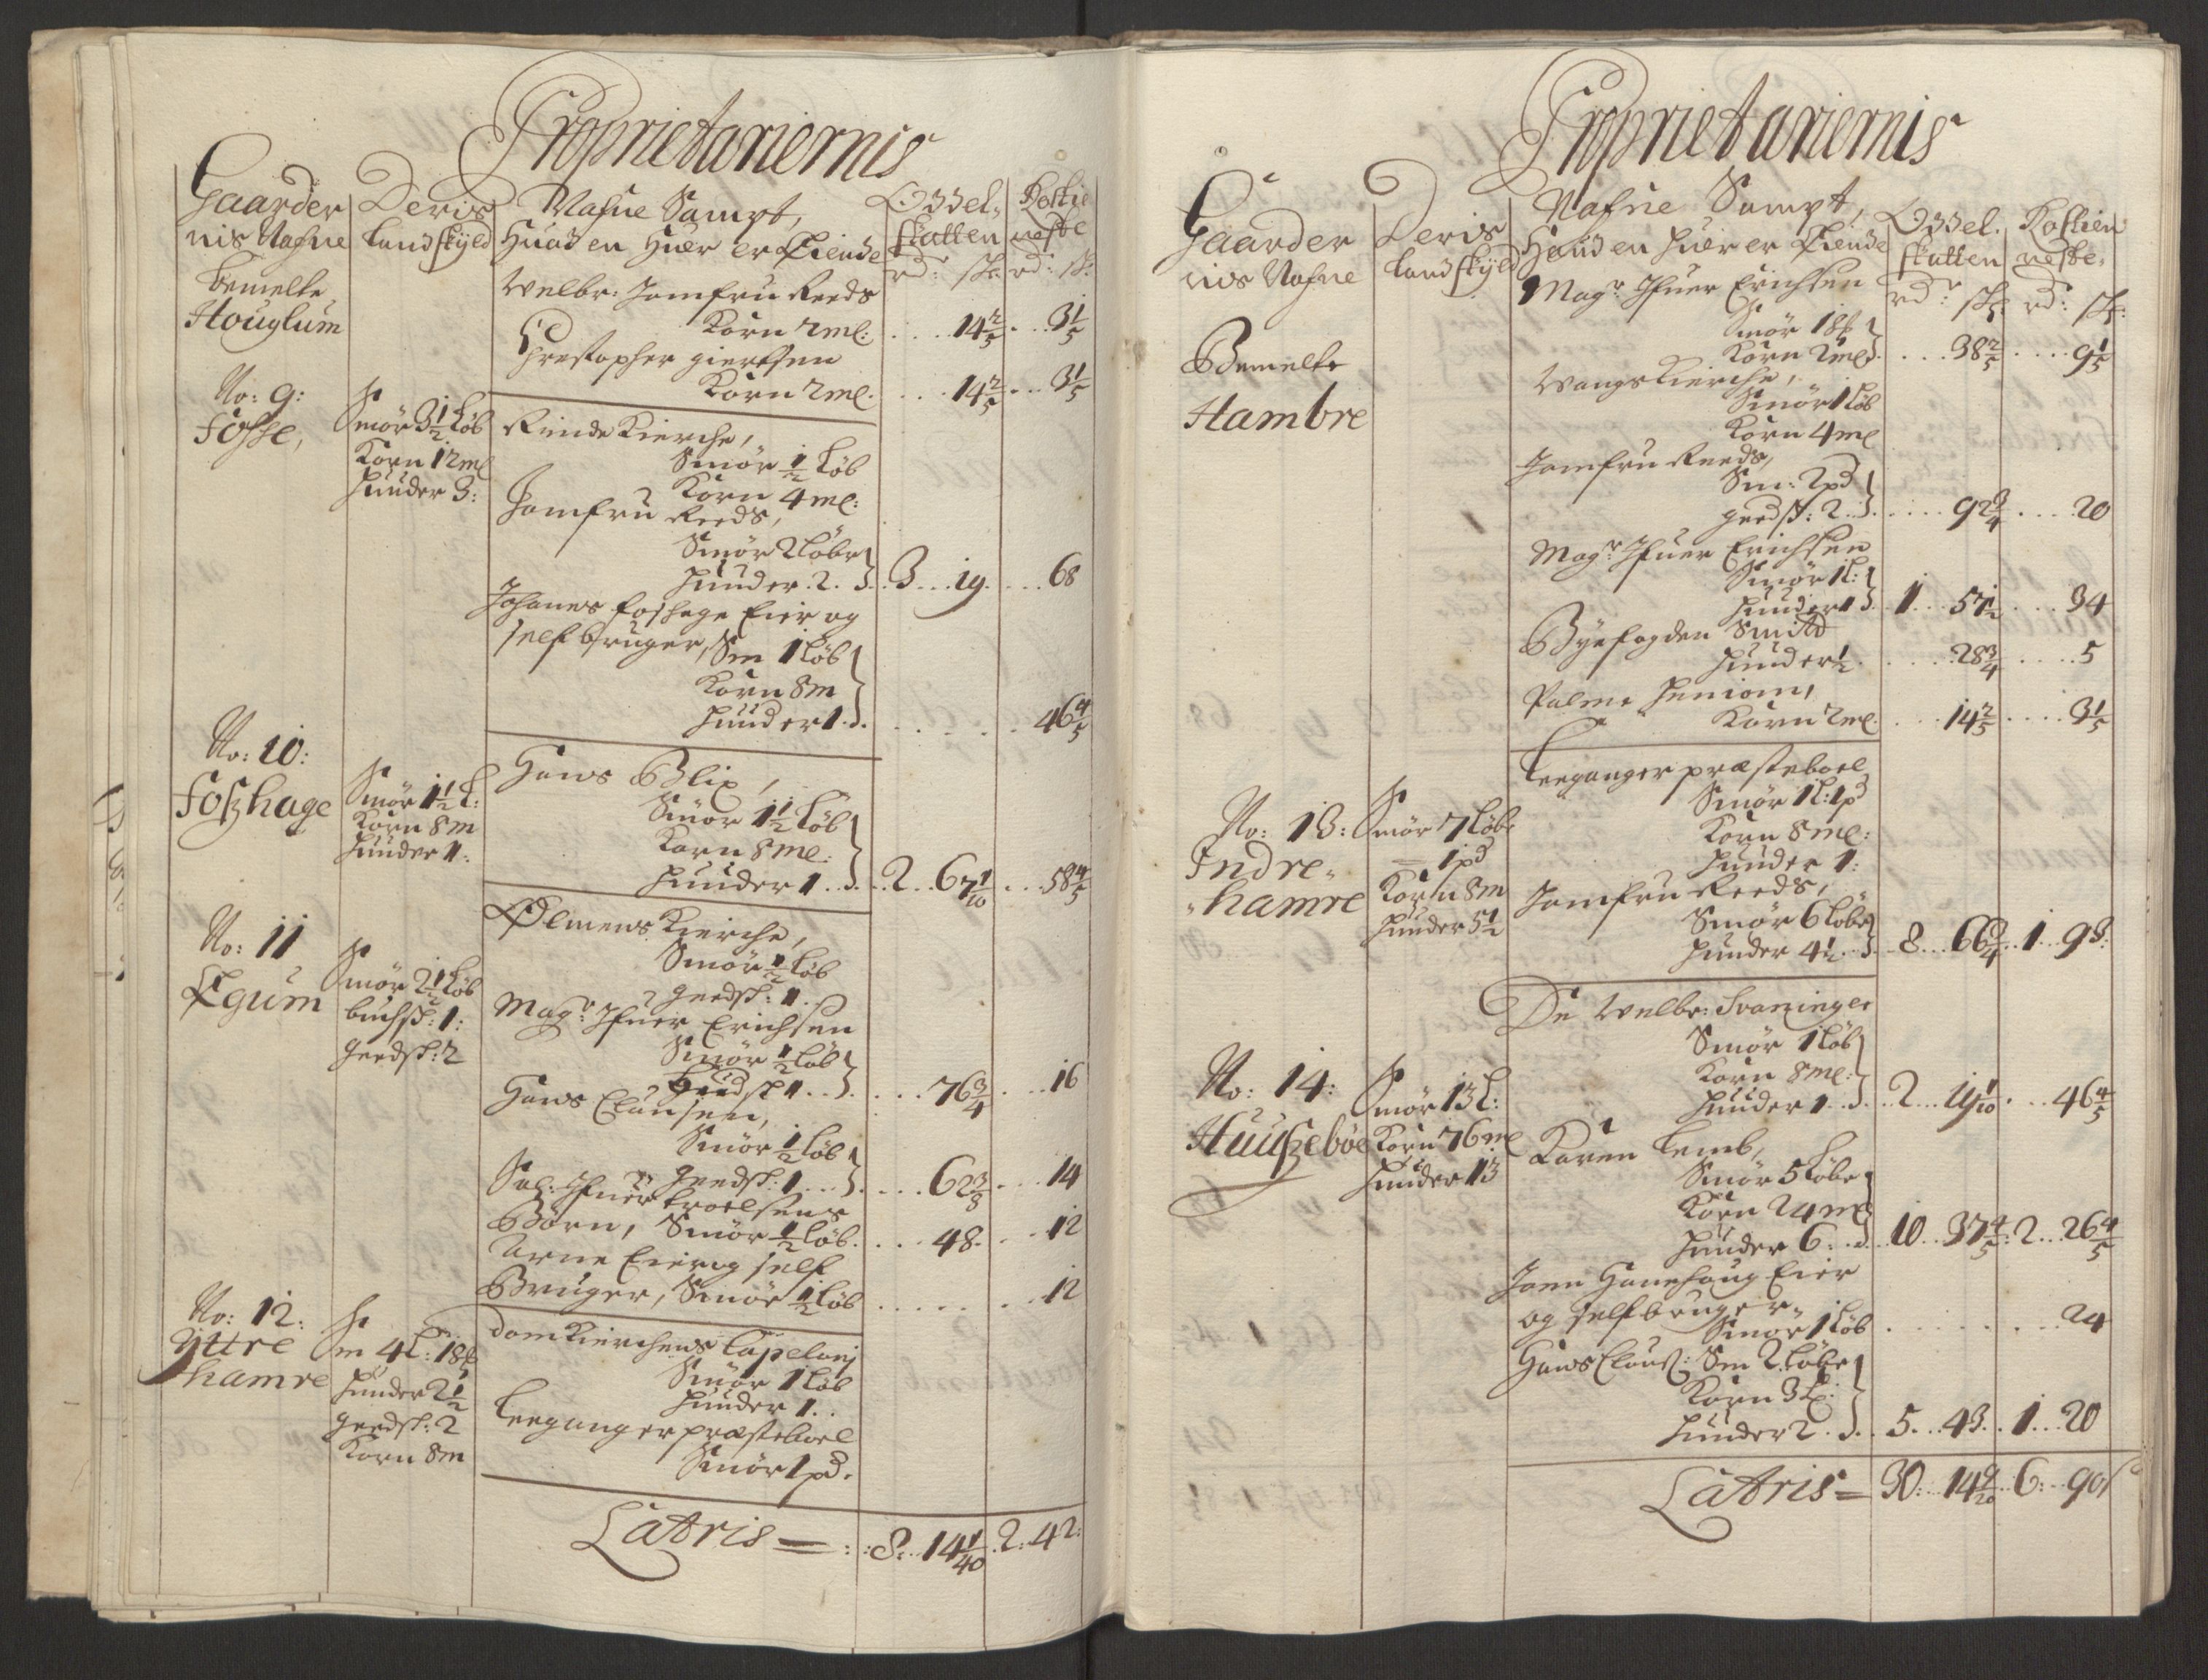 Proprietariernis
Gaarder
nis Nafne
Deris
landskyld
Nafne Sampt,
Huad en Huer er Eiende
Odzel.
skatten
rd: sk:
Rostie
neste
rd: sk:
bemelte
Houglum
Welbr: Jomfru Reeds
Korn 2 ml: . . . . 14 2/5 . . . 3 1/5
Christopher giertsen
Korn 2 ml. . . . 14 2/5 . . . 3 1/5
No: 9:
Fosse,
Smör 3 1/2 Löb
Korn 12 ml
Huuder 3:
Rinde Kierche,
Smör 1/2 Löb
Korn 4 ml:
Jomfru Reeds,
Smör 2 Löber
Huuder . 2 . . 3 . . . 19. . . . 68
Johanes foshage Eier og
self bruger, Sm 1 Löb
Korn 8 m
Huuder 1 . . . . . . 46 4/5
No: 10:
Foszhage
Smör 1 1/2 L:
Korn 8 m
Huuder 1:
Hans Blix,
Smör 1 1/2 Löb
Korn 8 ml:
Huuder 1 . . . 2 . . 67 1/10 . . . 58 4/5
No: 11
Egum
Smör 2 1/2 Löb
buchsk: 1:
geedsk: 2
Ølmens Kierche,
Smör 1/2 Löb
geedsk: 1.
Magr Ifuer Erichsen
Smör 1/2 Löb
Huudsk 1 . . . . . . 76 3/4 . . . 16
Hans Clausen,
Smör 1/2 Löb
geedsk: 1 . . . . . . 62 3/8 . . . 14
Sal: Ifuer troelsens
Börn, Smör 1/2 Löb. . . . 48. . . 12
Arne Eier og self
Bruger, Smör 1/2 Löb . . . . . . . 12
No: 12:
Yttre
hamre
Sm 4 L: 18
Huuder 2 1/2
geedsk: 2
Korn 8 m
Dom Kierchens Capelanj
Smör 1 Löb
Huuder 1 . .
Leeganger præsteboel
Smör 1 pd.
Latris = : : 8 . . 14 1/40 . 2 : 42:
Proprietariernis
Gaarder
nis Nafne
Deris
landskyld
Nafne Sampt,
Huad en huer er Eiende
Odzel.
skatten
rd: sk:
Rostien
neste.
rd: sk:
Bemelte
Hambre
Magr Ifuer Erichsen
Smör 18
Korn 2 ml . . . . 38 2/5 . . . . 9 1/5
Wangs Kierche,
Smör 1 Löb
Korn 4 ml
Jomfru Reeds,
Sm: 2 pd
geedsk: 2 . . . . . . . 92 3/4 . . . . 20
Magr Ifuer Erichsen
Smör 1 L:
Huuder 1 . 1 . . . 57 1/2 . . . . 34
Byefogden Smitt
Huuder 1/2 . . . . . 28 3/4 . . . . . 5
Palme Heniom,
Korn 2 ml. . . . 14 2/5 . . . . 3 1/5
No: 13:
Indre.
hamre
Smör 7 Löbe
= 1 pd
Korn 8 m
Huuder 5 1/2
Leeganger præsteboel
Smör 1 L: 1 pd
Korn 8 ml:
Huuder 1:
Jomfru Reeds,
Smör 6 Löber
Huuder 4 1/2 . . . 8 . . . 66 3/4 . . 1 . . 93:
No: 14:
Huuszebøe
Smör 13 L:
Korn 76 ml
Huuder 13
De Welbr: Svaninger
Smör 1 Löb
Korn 8 ml:
Huuder 1 . . . . 2 . . . 19 1/10 . . . 46 4/5
Karen Lemb,
Smör 5 Löber
Korn 24 ml
Huuder 6: . . . 10 . . 37 4/5 : 2 . . . 26 4/5
Joen Hanehoug Eier
og self bruger.
Smör 1 Löb . . . . . . . . 24
Hans Claus: Sm 2 Löber
Korn 3
Huuder 2 . . . 5 . . . 43. . . 1 . . . 20
Latris = 30: . . 14 9/20 . : 6: . . 90